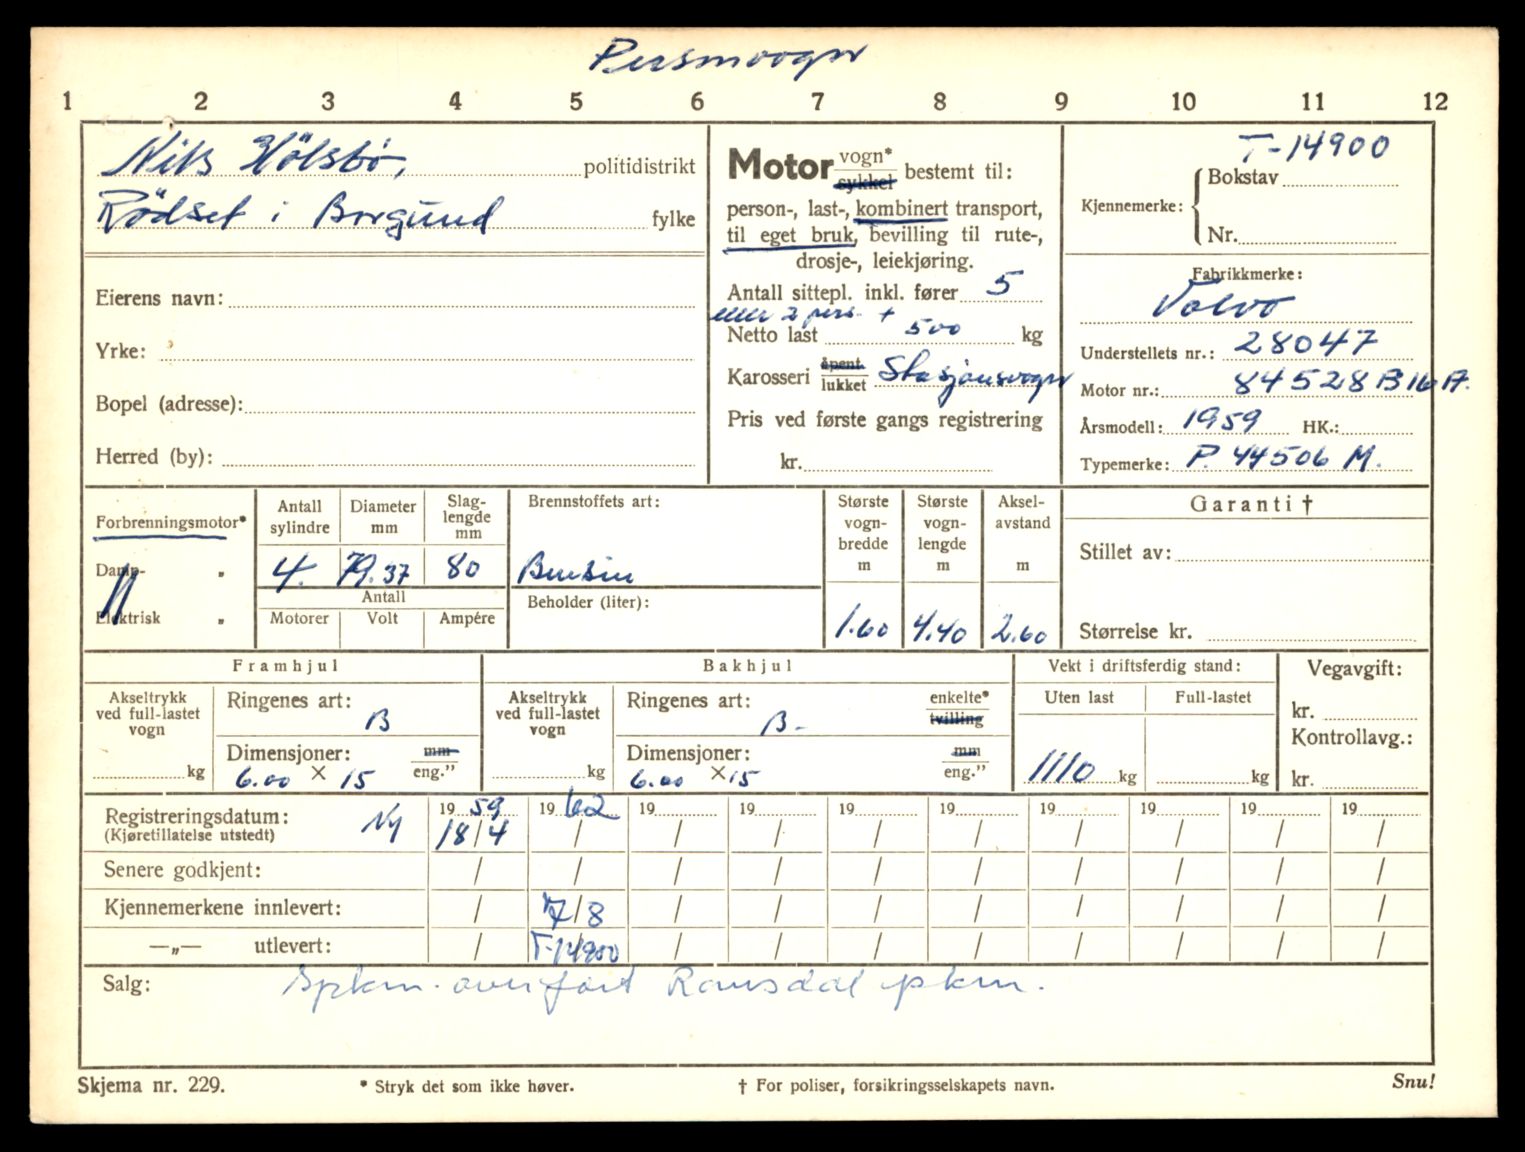 Personvogn
1 2 3 4 5 6 7 8 9 10 11 12
Nils Hölsbö, politidistrikt
Rödset i Borgund fylke
Eierens navn:
Yrke:
Bopel (adresse):
Herred (by):
Motor vogn* sykkel bestemt til:
person-, last-, kombinert transport,
til eget bruk, bevilling til rute-,
drosje-, leiekjøring.
Antall sittepl. inkl. fører 5
eller 2 pers. +
Netto last 500 kg
Karosseri åpent lukket Stasjonsvogn
Pris ved første gangs registrering
kr.
T-14900
Kjennemerke: Bokstav
Nr.
Fabrikkmerke:
Volvo
Understellets nr.: 28047
Motor nr.: 84528 B16A.
Årsmodell: 1959 HK.:
Typemerke: P. 44506 M.
Forbrenningsmotor*
Damp- „
Elektrisk „
Antall sylindre Diameter mm Slaglengde mm
4. 79.37 80
Antall
Motorer Volt Ampére
Brennstoffets art:
Bensin
Beholder (liter):
Største vognbredde m Største vognlengde m Akselavstand m
1.60 4.40 2.60
Garanti †
Stillet av:
Størrelse kr.
Framhjul
Akseltrykk ved full-lastet vogn
kg
Ringenes art:
B
Dimensjoner: mm
6.00 × 15 eng.”
Bakhjul
Akseltrykk ved full-lastet vogn
kg
Ringenes art: enkelte*
B- tvilling
Dimensjoner: mm
6.00 × 15 eng.”
Vekt i driftsferdig stand:
Uten last Full-lastet
1110 kg kg
Vegavgift:
kr.
Kontrollavg.:
kr.
Registreringsdatum: Ny 19 59 19 62 19 19 19 19 19 19 19 19
(Kjøretillatelse utstedt) 18/4 / / / / / / / / /
Senere godkjent: / / / / / / / / / /
Kjennemerkene innlevert: / 7/8 / / / / / / / /
—„— utlevert: / T-14900 / / / / / / / /
Salg: Spkm. overfört Romsdal pkm.
Skjema nr. 229. * Stryk det som ikke høver. † For poliser, forsikringsselskapets navn. Snu!